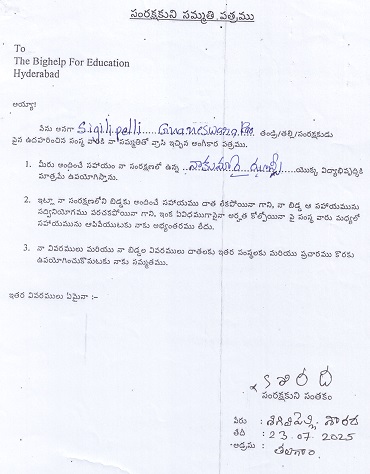 సంరక్షకుని సమ్మతి పత్రము
To
The Bighelp For Education
Hyderabad
అయ్యా!
నేను అనగా Sigilipelli ..... Gnaneswara Rao తండ్రి/తల్లి/సంరక్షకుడు
పైన ఉదహరించిన సంస్థ వారికి నా సమ్మతితో వ్రాసి ఇచ్చిన అంగీకార పత్రము.
1. మీరు అందించే సహాయం నా సంరక్షణలో ఉన్న .. నాకుమార్తె ..... యొక్క విద్యాభివృద్ధికి
మాత్రమే ఉపయోగిస్తాను.
2. ఇట్లా నా సంరక్షణలోని బిడ్డకు అందించే సహాయము దాత లేకపోయినా గాని, నా బిడ్డ ఆ సహాయమును
సద్వినియోగము పరచకపోయినా గాని, ఇంక ఏవిధముగానైనా అర్హత కోల్పోయినా పై సంస్థ వారు మధ్యలో
సహాయమును ఆపివేయుటకు నాకు అభ్యంతరము లేదు.
3. నా వివరములు మరియు నా బిడ్డల వివరములు దాతలకు ఇతర సంస్థలకు మరియు ప్రచారము కొరకు
ఉపయోగించుకొనుటకు నాకు సమ్మతము.
ఇతర వివరములు ఏమైనా :-
x శారద
సంరక్షకుని సంతకం
పేరు : శిగిలిపెల్లి శారద
తేది : 23.07.2025
అడ్రసు :